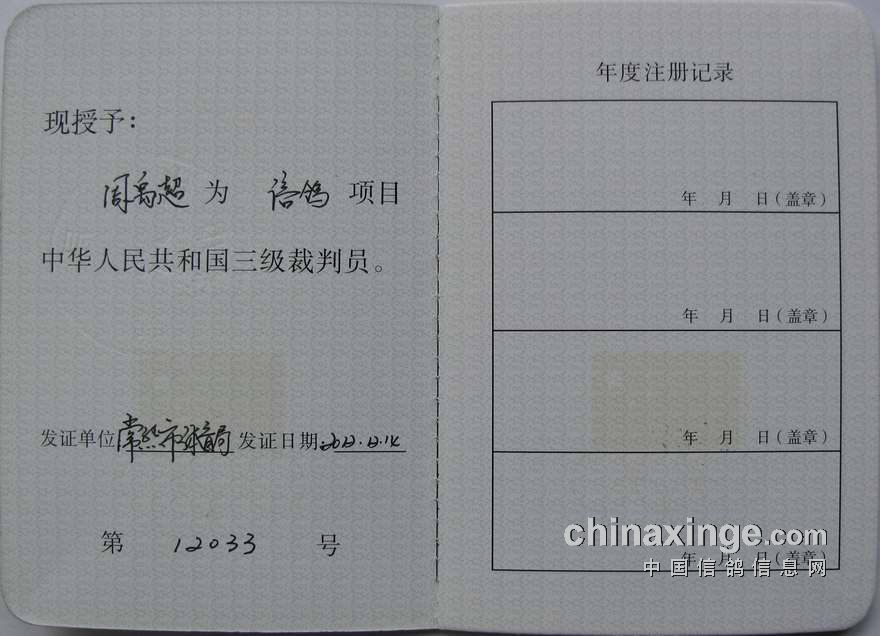 现授予：
周禹超 为 信鸽 项目
中华人民共和国三级裁判员。
发证单位 常熟市体育局 发证日期 2012.12.14
第 12033 号
年度注册记录
年 月 日（盖章）
年 月 日（盖章）
年 月 日（盖章）
年 月 日（盖章）
chinaxinge.com
中国信鸽信息网